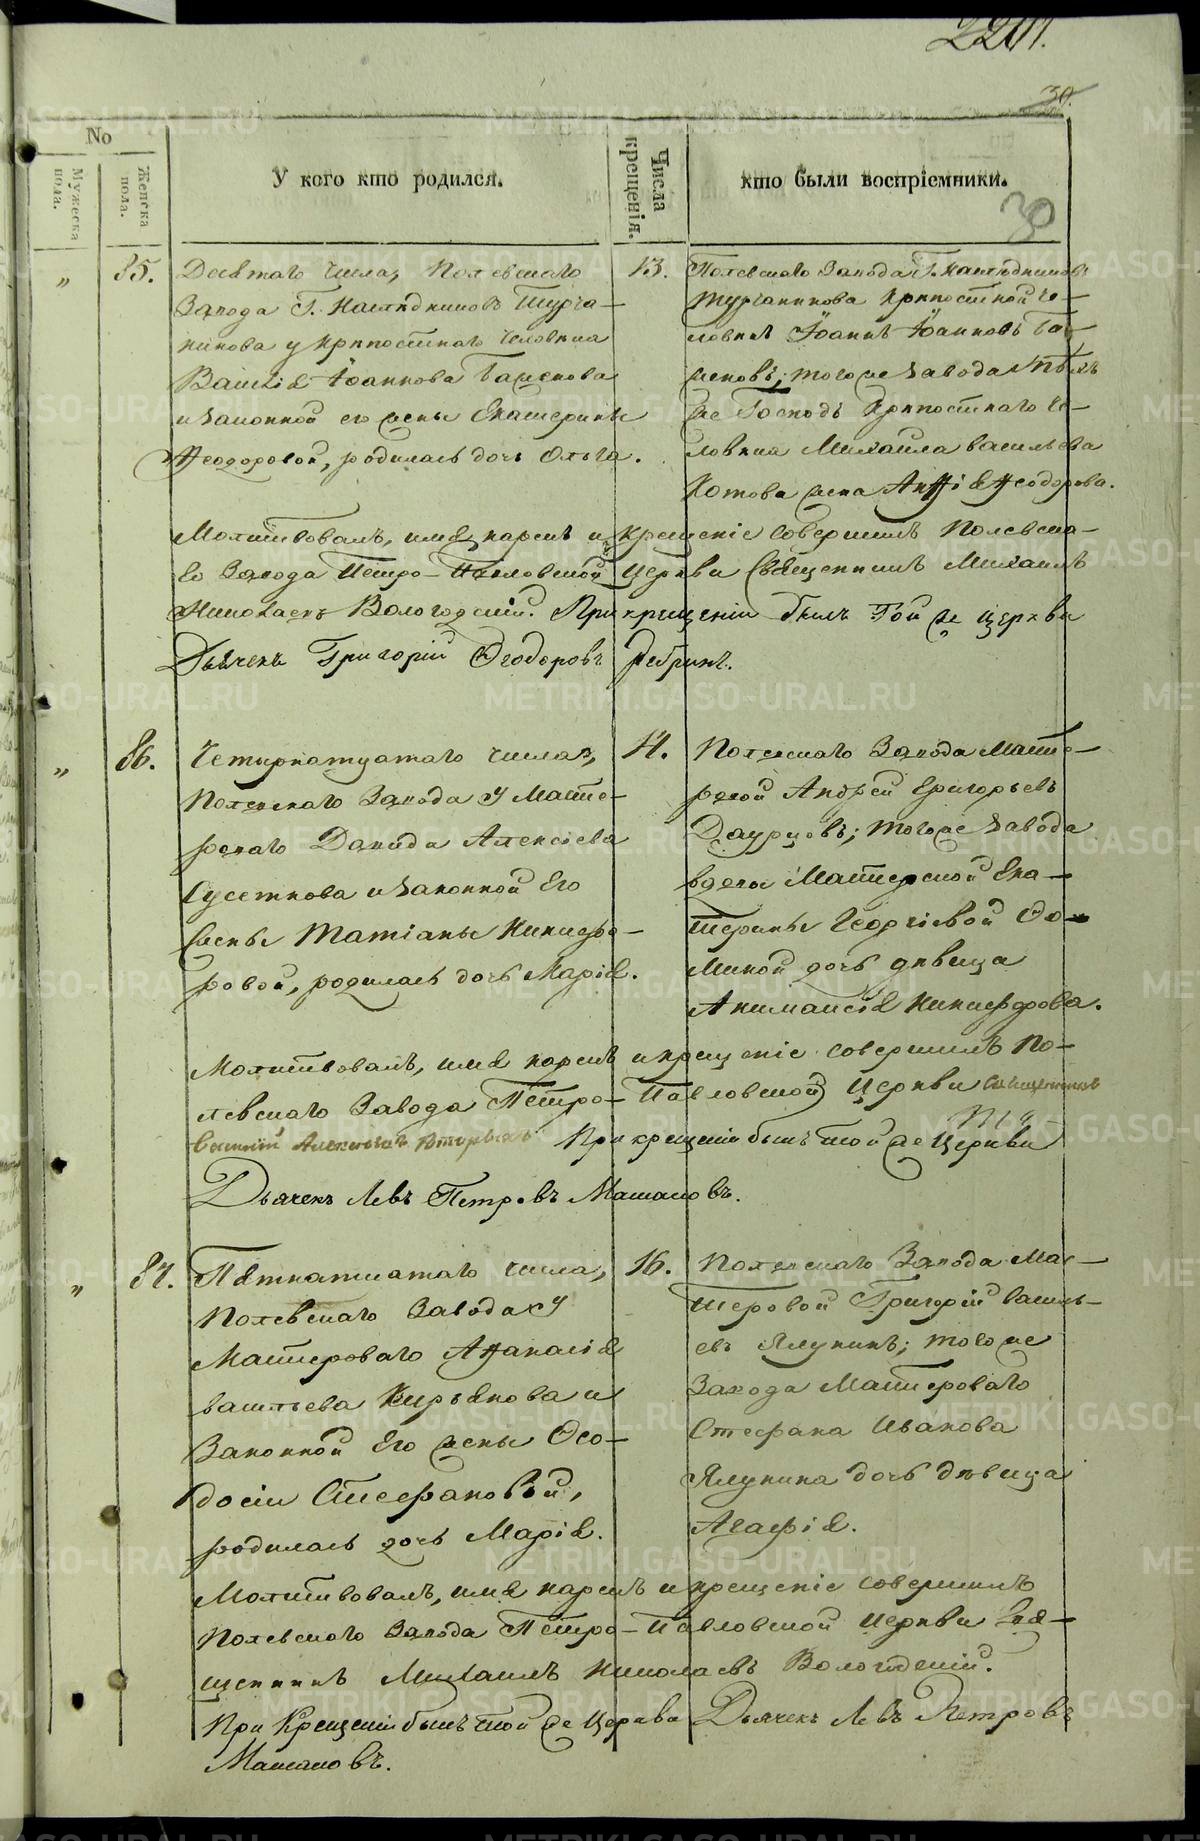 2201.
30.
No
Мужеска пола.
Женска пола.
У кого кто родился.
Числа крещенія.
кто были воспріемники.
30
" 85.
Девятаго числа, Полевскаго
Завода Г. Наслѣдниковъ Турча-
нинова у крѣпостнаго человѣка
Василія Іоаннова Баженова
и законной его жены Екатерины
Ѳеодоровой, родилась дочь Ольга.
13.
Полевскаго Завода Г. Наслѣдниковъ
Турчанинова крѣпостной че-
ловѣкъ Іоаннъ Іоанновъ Ба-
женовъ; того же Завода тѣхъ
же Господъ крѣпостнаго че-
ловѣка Михаила Васильева
Котова жена Ѳеодорова.
Молитвовалъ, имя нарекъ и крещеніе совершилъ Полевска-
го Завода Петро-Павловской Церкви Священникъ Михаилъ
Николаевъ Вологодскій. При крещеніи былъ той же церкви
Дьячекъ Григорій Ѳеодоровъ Ребринъ.
" 86.
Четырнатцатаго числа,
Полевскаго Завода у Масте-
роваго Данида Алексіева
Сусеткова и законной Его
жены Татіаны Никифо-
ровой, родилась дочь Марія.
14.
Полевскаго Завода Масте-
ровой Андрей Григорьевъ
Даурцовъ; того же Завода
вдовы Мастерской Ека-
терины Георгіевой Ѳо-
миной дочь дѣвица
Никифорова.
Молитвовалъ, имя нарекъ и крещеніе совершилъ По-
левскаго Завода Петро-Павловской Церкви Священникъ
Василій Алексѣевъ При крещеніи былъ той же Церкви
Дьячекъ Левъ Петровъ Мамановъ.
" 87.
Пятнатцатаго числа,
Полевскаго Завода у
Мастероваго Аѳанасія
Васильева Кирьякова и
Законной Его жены Ѳео-
досіи Стефановой,
родилась дочь Марія.
16.
Полевскаго Завода Мас-
теровой Григорій Василь-
евъ Ялунинъ; того же
Завода Мастероваго
Стефана Иванова
Ялунина дочь дѣвица
Агафія.
Молитвовалъ, имя нарекъ и крещеніе совершилъ
Полевскаго Завода Петро-Павловской Церкви Свя-
щенникъ Михаилъ Николаевъ Вологодскій.
При Крещеніи былъ той же Церкви Дьячекъ Левъ Петровъ
Мамановъ.
METRIKI.GASO-URAL.RU